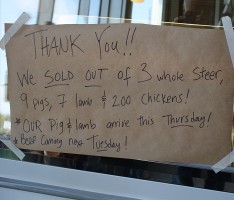 THANK YOU!!
We SOLD OUT of 3 whole Steer,
9 pigs, 7 lamb & 200 chickens!
*OUR Pig & lamb arrive this Thursday!
*Beef Coming next Tuesday!